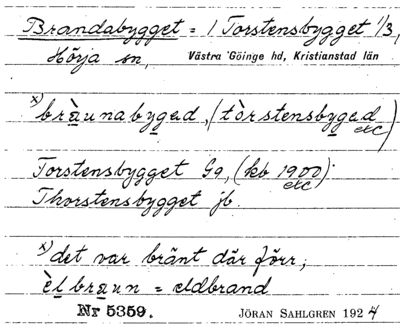 Brandabygget = / Torstensbygget 1/3,
Hörja sn, Västra Göinge hd, Kristianstad län
x) bràunabyged, (tòrstensbyged etc)
Torstensbygget Gg, (kb 1900) etc
Thorstensbygget jb.
x) det var bränt där förr;
èlbraun = eldbrand
Nr 5359. JÖRAN SAHLGREN 1924